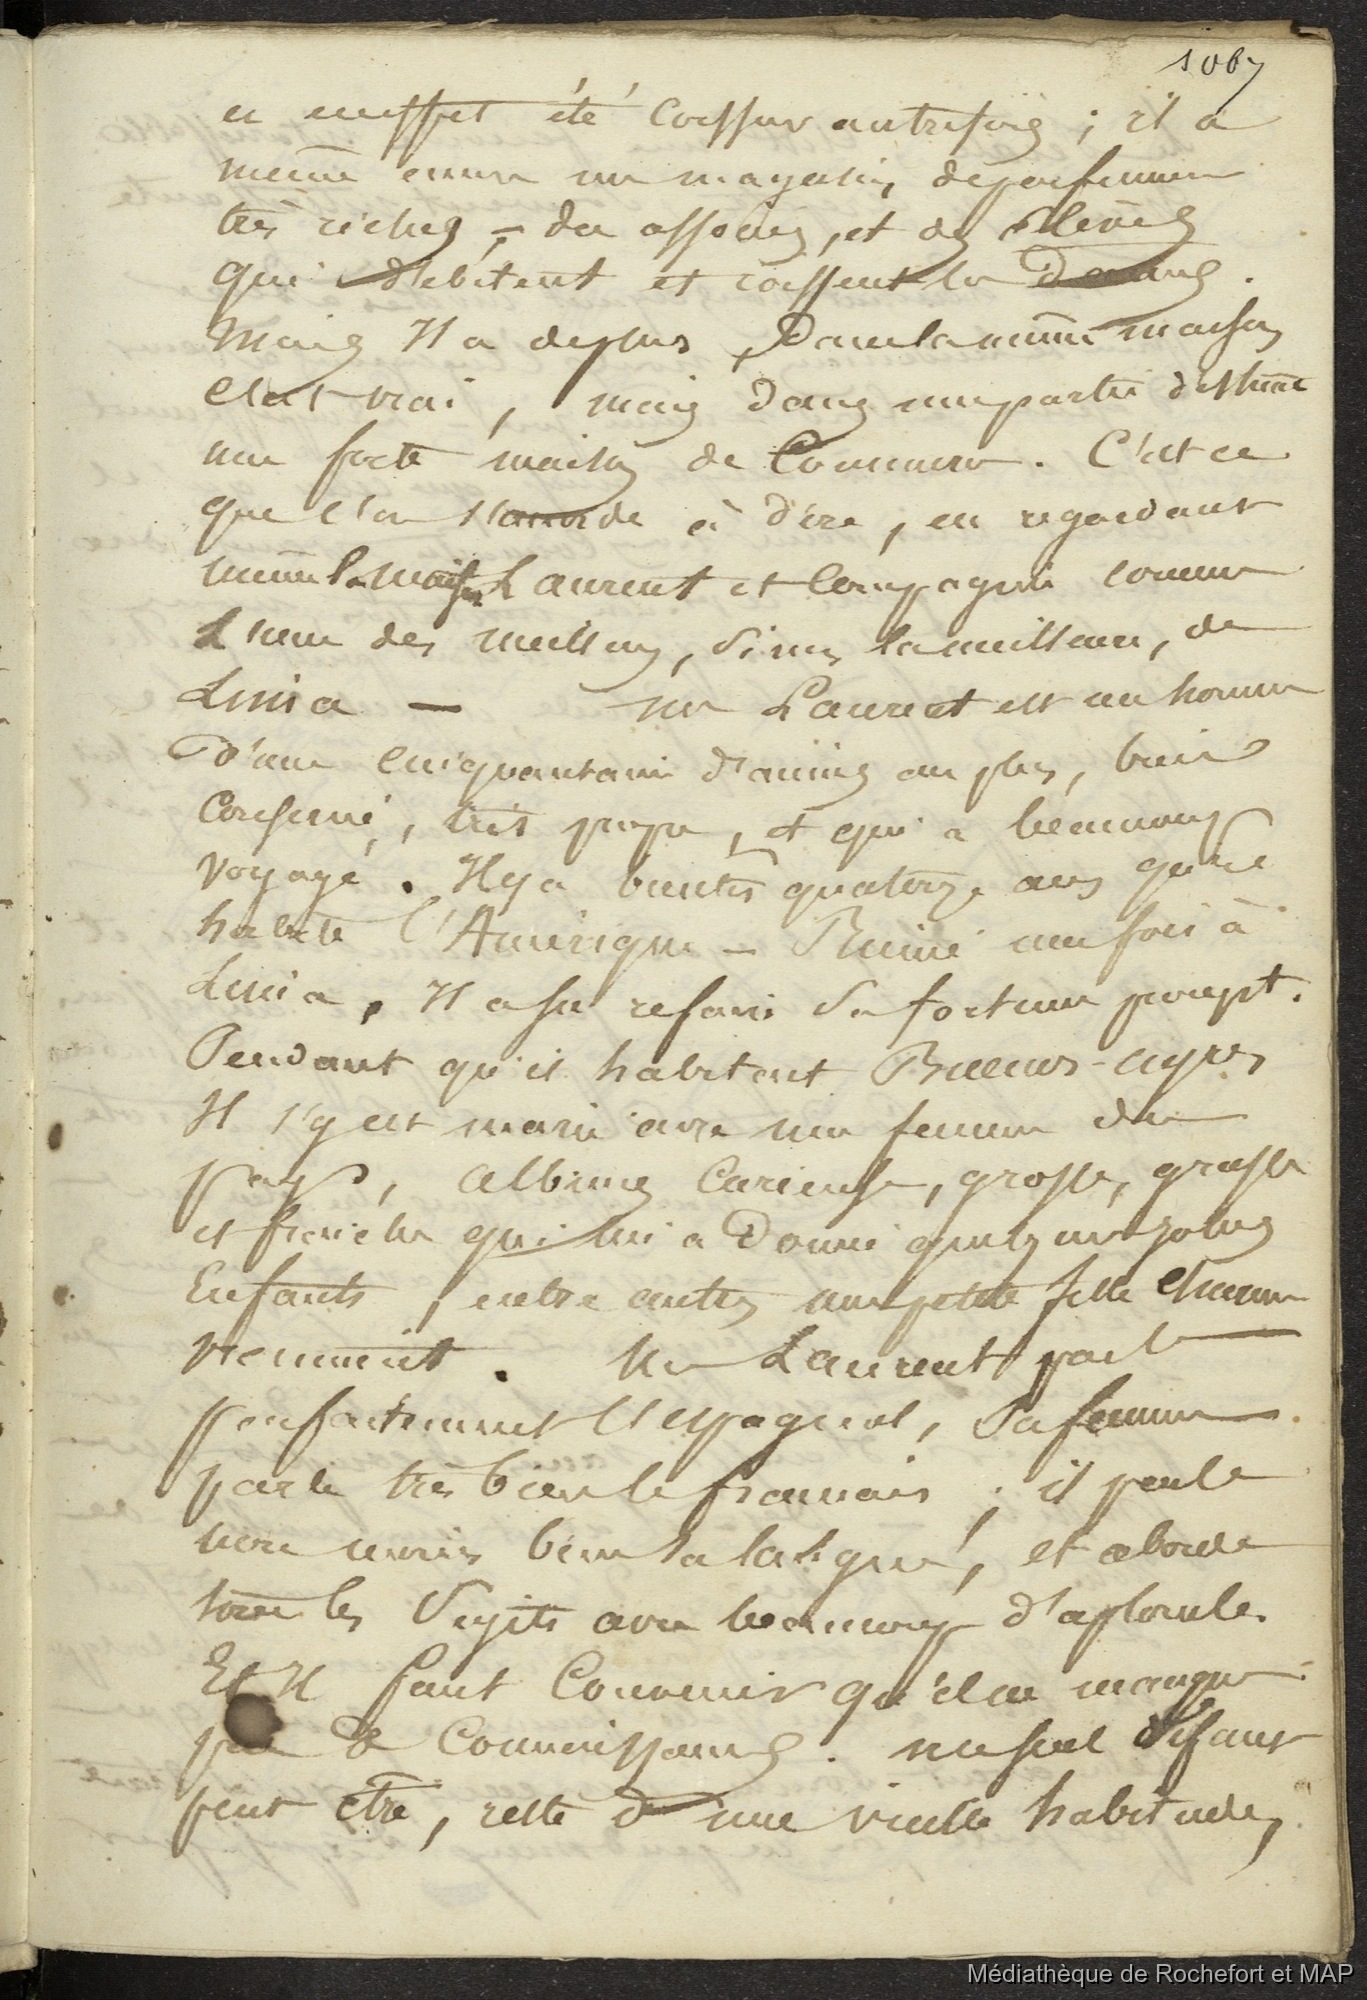 1067
a eneffet été Coeffeur autrefois ; il a
même encore un magasin, de parfumerie
très riches, – des associés, et des élèves
qui débitent et coiffent les Dames.
Mais Il a de plus, Dans la même maison
C'est vrai, mais dans une partie distincte
une forte maison de Commerce. C'est ce
que l'on s'accorde à dire, en regardant
même la maison Laurent et Compagnie comme
L'une des meilleures, sinon la meilleure, de
Lima — Mr Laurent est un homme
D'une cinquantaine d'années au plus, bien
Conservé, très propre, et qui a beaucoup
voyagé. Il y a bientôt quatorze ans qu'il
habite l'Amérique – Ruiné une fois à
Lima, Il a su refaire sa fortune prompt.
Pendant qu'il habitait Buenos-ayres
Il s'y est marié avec une femme du
pays, Albinos Curieuse, grosse, grasse
et fraiche qui lui a Donné quelques jolies
Enfants, entre autres une petite fille Charm
Vraiment. Mr Laurent parle
parfaitement l'espagnol, Sa femme
parle très bien le français ; il parle
non moins bien sa langue, et aborde
tous les Sujets avec beaucoup d'aplomb.
Et Il faut Convenir qu'il ne manque
pas de Connaissances. un seul défaut
peut être, reste d'une vieille habitude,
Médiathèque de Rochefort et MAP